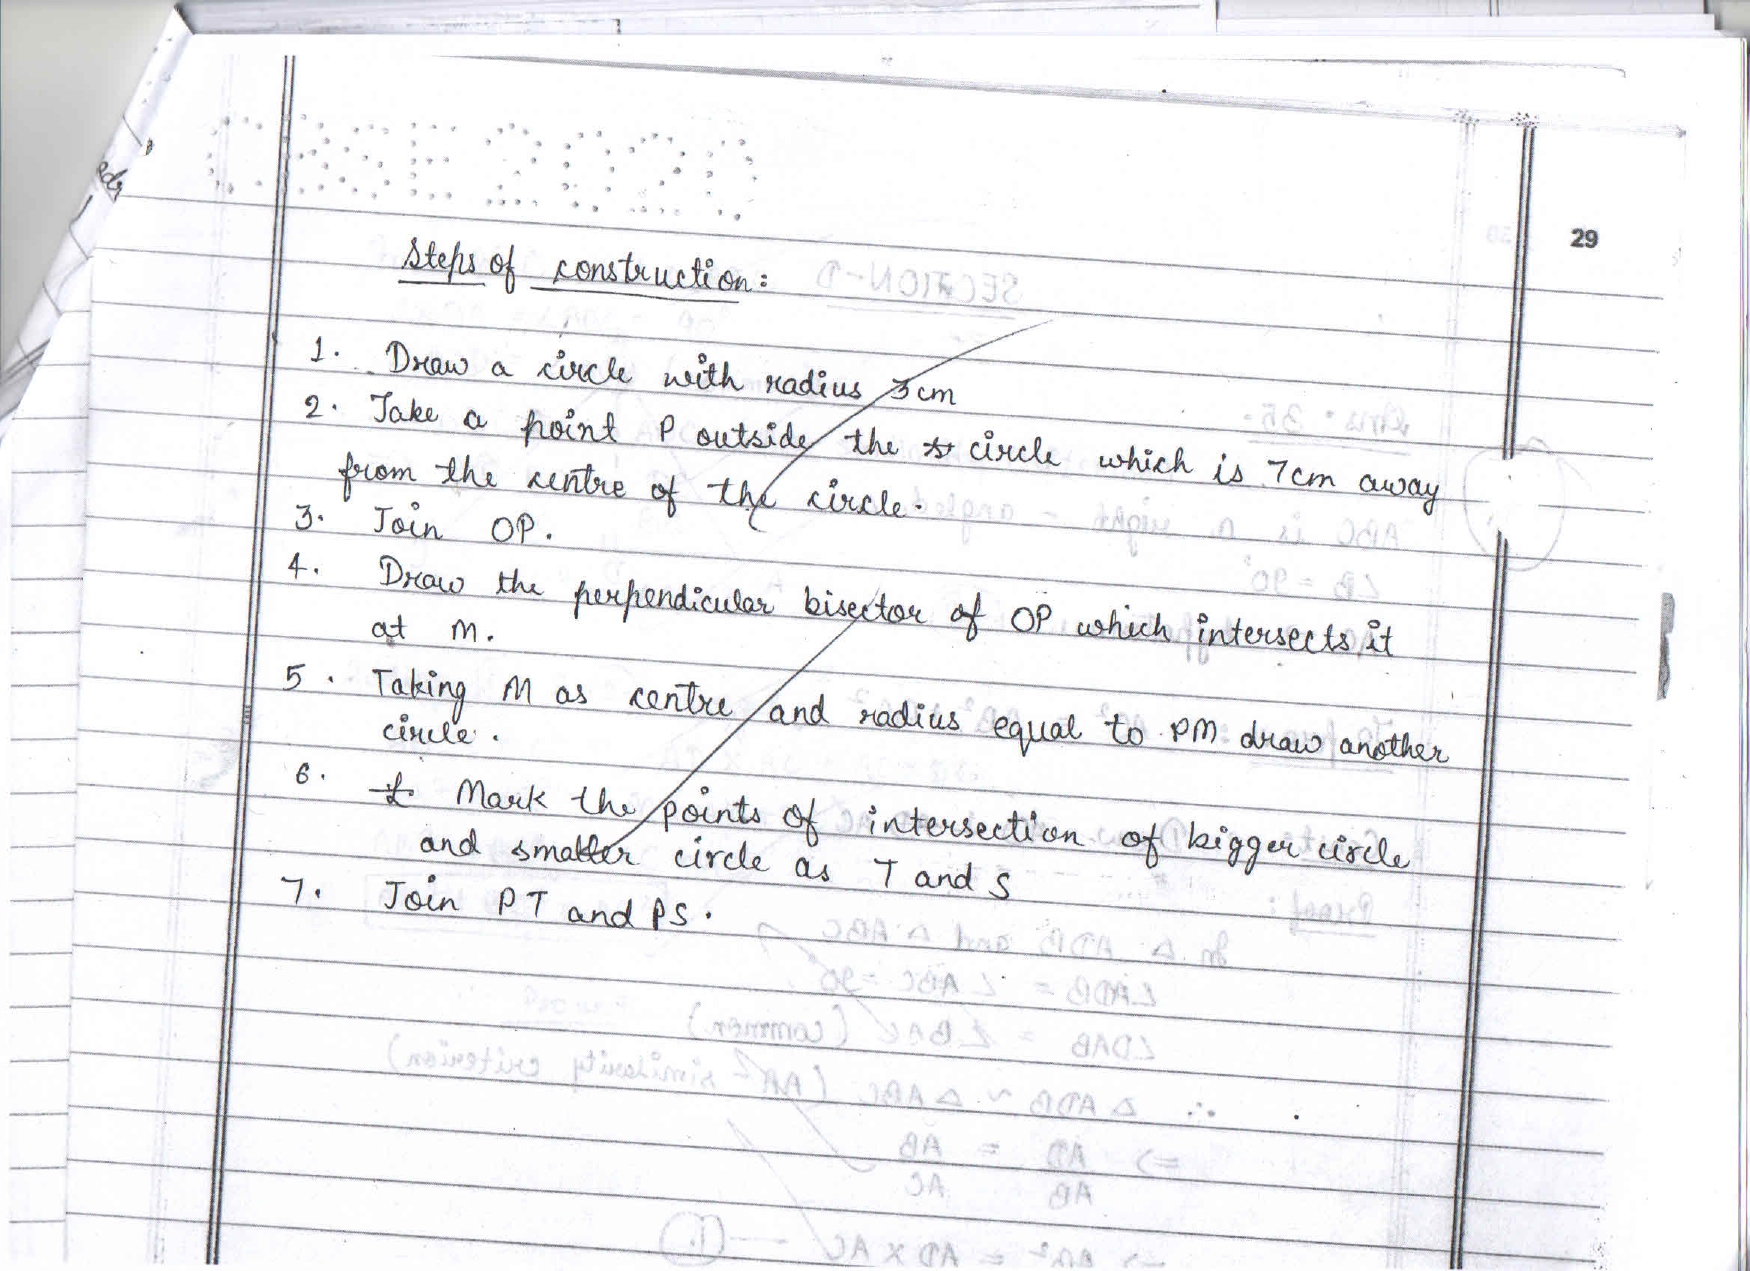 CBSE 2020
29
Steps of construction:
1. Draw a circle with radius 3 cm
2. Take a point P outside the circle which is 7cm away
from the centre of the circle.
3. Join OP.
4. Draw the perpendicular bisector of OP which intersects it
at M.
5. Taking M as centre and radius equal to PM draw another
circle.
6. Mark the points of intersection of bigger circle
and smaller circle as T and S
7. Join PT and PS.